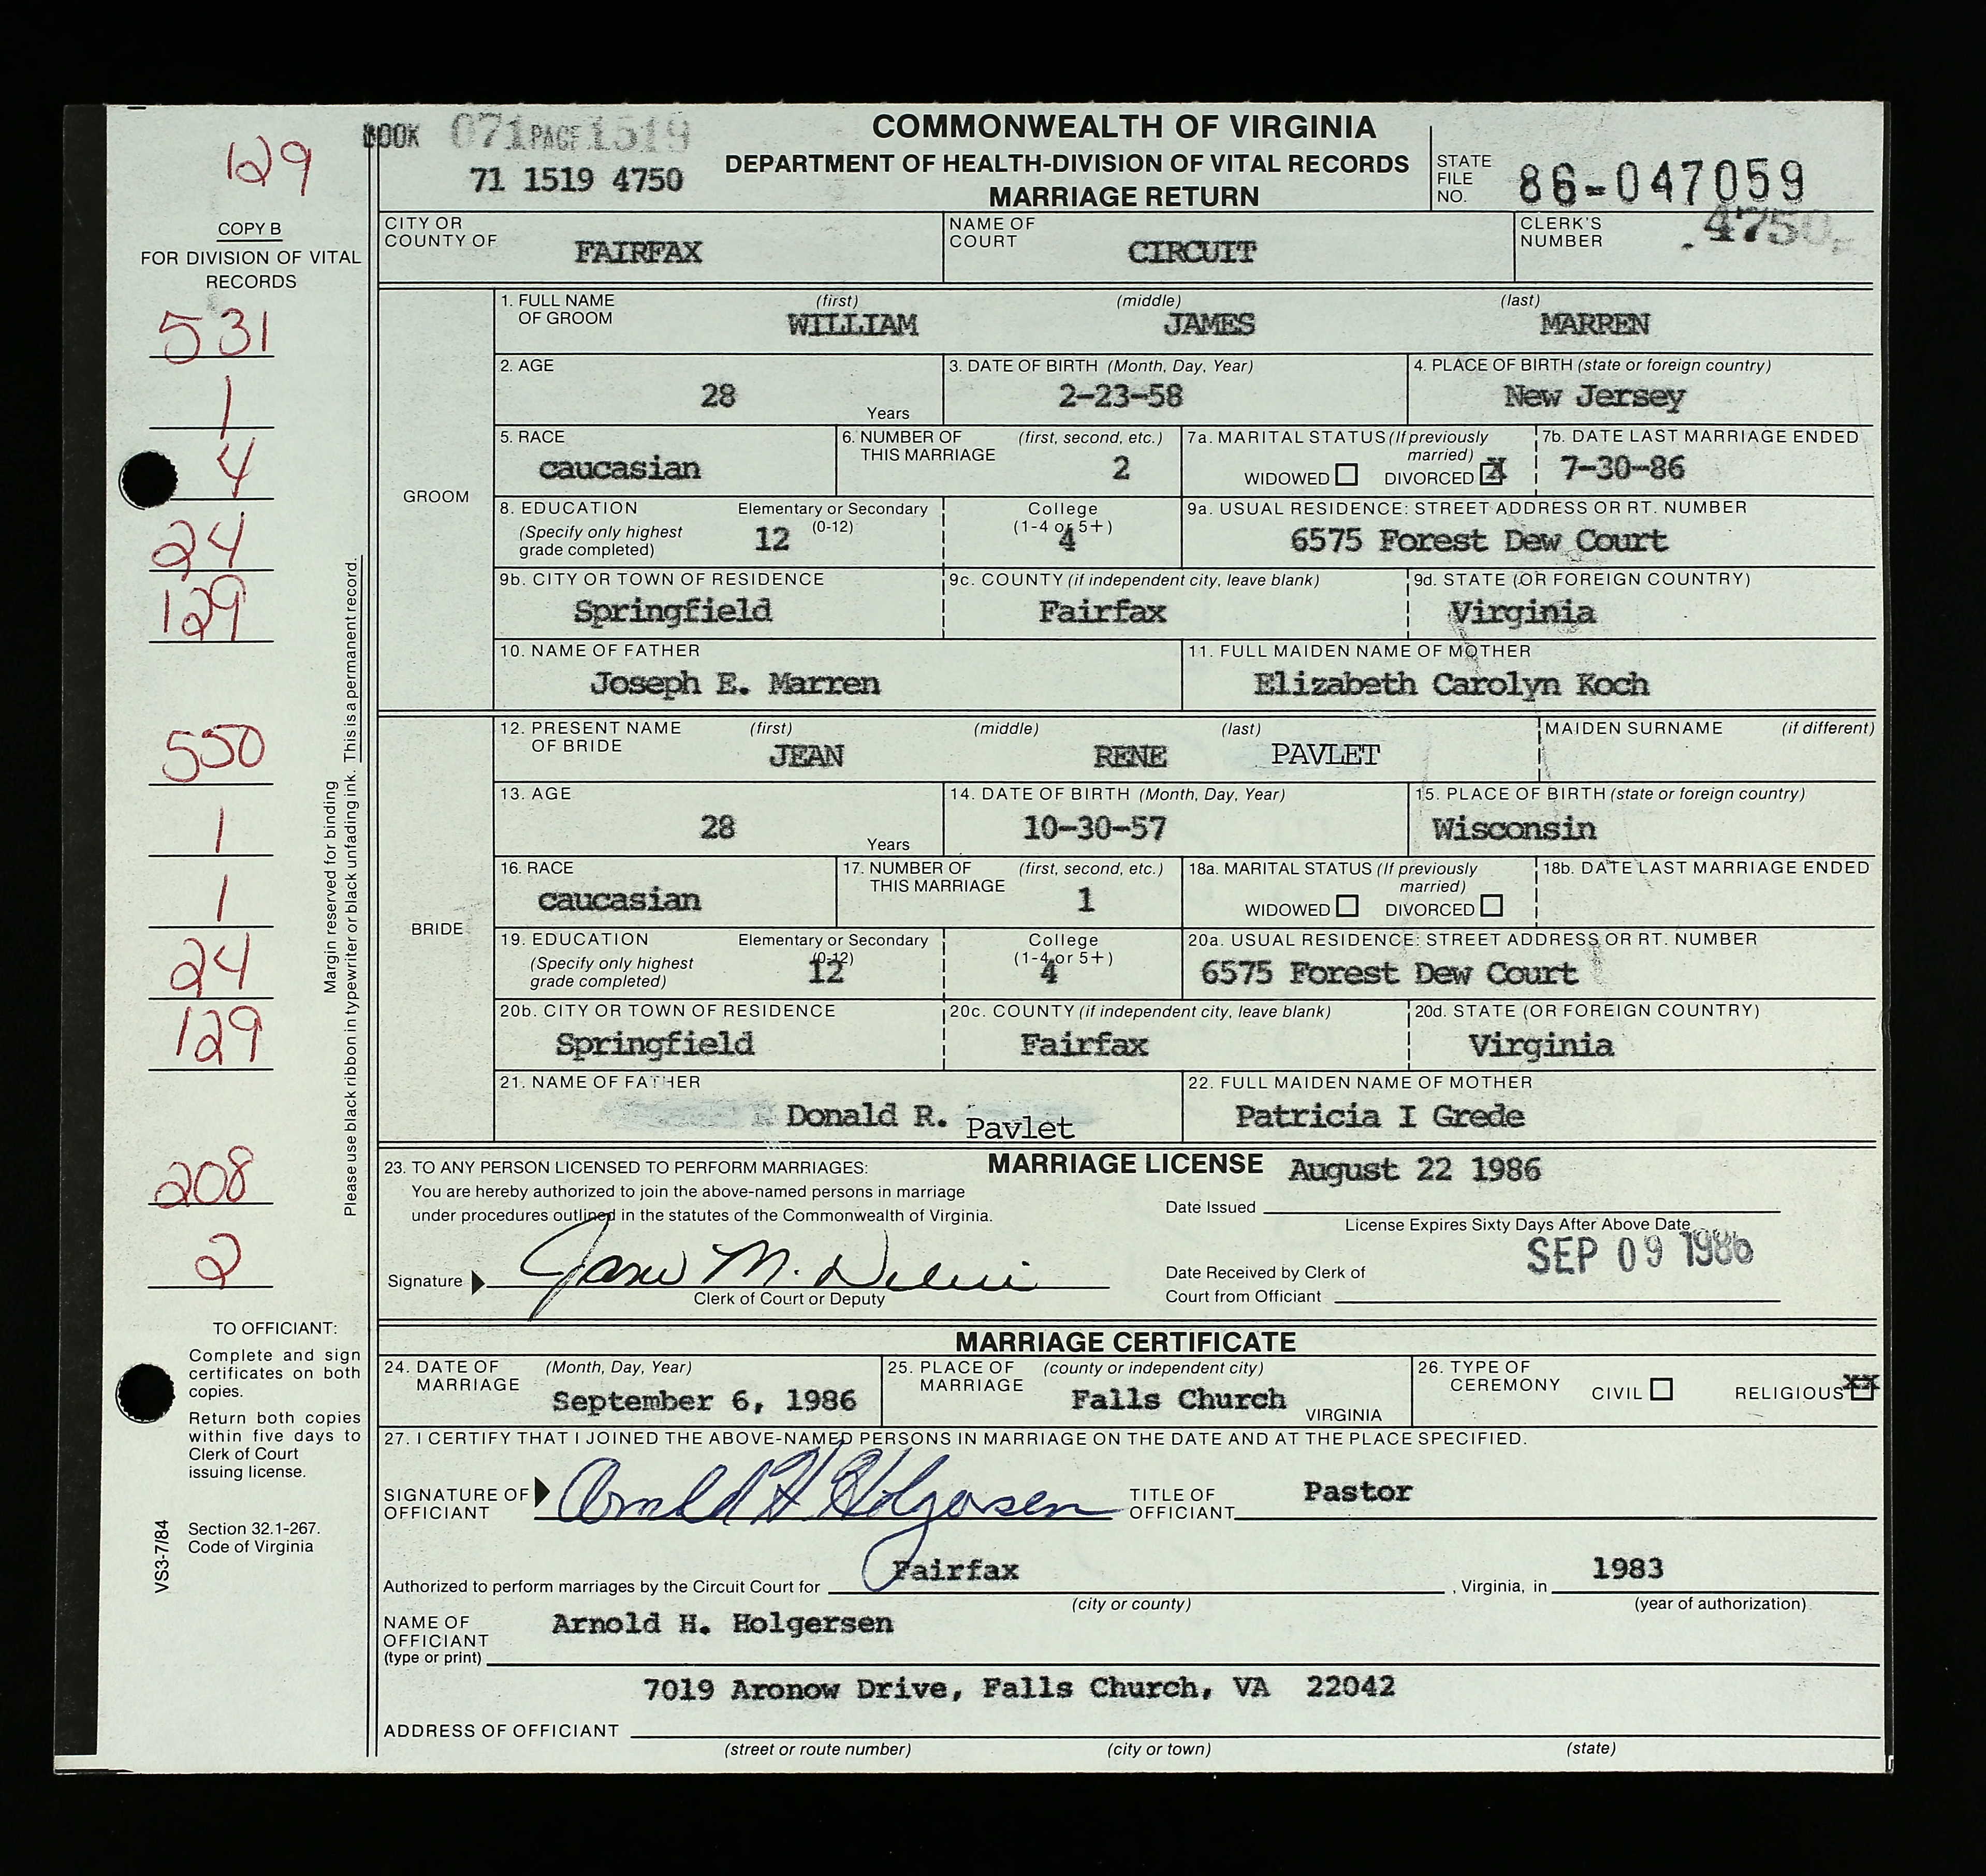 129
COPY B
FOR DIVISION OF VITAL
RECORDS
531
1
4
24
129
550
1
1
24
129
208
2
Margin reserved for binding
Please use black ribbon in typewriter or black unfading ink. This is a permanent record.
TO OFFICIANT:
Complete and sign
certificates on both
copies.
Return both copies
within five days to
Clerk of Court
issuing license.
Section 32.1-267.
Code of Virginia
VS3-7/84
BOOK 071 PAGE 1519
71 1519 4750
COMMONWEALTH OF VIRGINIA
DEPARTMENT OF HEALTH-DIVISION OF VITAL RECORDS
MARRIAGE RETURN
STATE
FILE
NO. 86-047059
CITY OR
COUNTY OF FAIRFAX
NAME OF
COURT CIRCUIT
CLERK'S
NUMBER 4750
GROOM
1. FULL NAME (first) (middle) (last)
OF GROOM WILLIAM JAMES MARREN
2. AGE 28 Years
3. DATE OF BIRTH (Month, Day, Year)
2-23-58
4. PLACE OF BIRTH (state or foreign country)
New Jersey
5. RACE
caucasian
6. NUMBER OF (first, second, etc.)
THIS MARRIAGE 2
7a. MARITAL STATUS (If previously
married)
WIDOWED DIVORCED X
7b. DATE LAST MARRIAGE ENDED
7-30-86
8. EDUCATION Elementary or Secondary College
(Specify only highest (0-12) (1-4 or 5+)
grade completed) 12 4
9a. USUAL RESIDENCE: STREET ADDRESS OR RT. NUMBER
6575 Forest Dew Court
9b. CITY OR TOWN OF RESIDENCE
Springfield
9c. COUNTY (if independent city, leave blank)
Fairfax
9d. STATE (OR FOREIGN COUNTRY)
Virginia
10. NAME OF FATHER
Joseph E. Marren
11. FULL MAIDEN NAME OF MOTHER
Elizabeth Carolyn Koch
BRIDE
12. PRESENT NAME (first) (middle) (last) MAIDEN SURNAME (if different)
OF BRIDE JEAN RENE PAVLET
13. AGE
28 Years
14. DATE OF BIRTH (Month, Day, Year)
10-30-57
15. PLACE OF BIRTH (state or foreign country)
Wisconsin
16. RACE
caucasian
17. NUMBER OF (first, second, etc.)
THIS MARRIAGE 1
18a. MARITAL STATUS (If previously
married)
WIDOWED DIVORCED
18b. DATE LAST MARRIAGE ENDED
19. EDUCATION Elementary or Secondary College
(Specify only highest (0-12) (1-4 or 5+)
grade completed) 12 4
20a. USUAL RESIDENCE: STREET ADDRESS OR RT. NUMBER
6575 Forest Dew Court
20b. CITY OR TOWN OF RESIDENCE
Springfield
20c. COUNTY (if independent city, leave blank)
Fairfax
20d. STATE (OR FOREIGN COUNTRY)
Virginia
21. NAME OF FATHER
Donald R. Pavlet
22. FULL MAIDEN NAME OF MOTHER
Patricia I Grede
23. TO ANY PERSON LICENSED TO PERFORM MARRIAGES:
You are hereby authorized to join the above-named persons in marriage
under procedures outlined in the statutes of the Commonwealth of Virginia.
MARRIAGE LICENSE
Date Issued August 22 1986
License Expires Sixty Days After Above Date
Signature
Clerk of Court or Deputy
Date Received by Clerk of
Court from Officiant SEP 09 1986
MARRIAGE CERTIFICATE
24. DATE OF (Month, Day, Year)
MARRIAGE September 6, 1986
25. PLACE OF (county or independent city)
MARRIAGE Falls Church VIRGINIA
26. TYPE OF
CEREMONY CIVIL RELIGIOUS XX
27. I CERTIFY THAT I JOINED THE ABOVE-NAMED PERSONS IN MARRIAGE ON THE DATE AND AT THE PLACE SPECIFIED.
SIGNATURE OF
OFFICIANT Arnold H. Holgersen
TITLE OF
OFFICIANT Pastor
Authorized to perform marriages by the Circuit Court for Fairfax, Virginia, in 1983
(city or county) (year of authorization)
NAME OF
OFFICIANT
(type or print) Arnold H. Holgersen
7019 Aronow Drive, Falls Church, VA 22042
ADDRESS OF OFFICIANT
(street or route number) (city or town) (state)